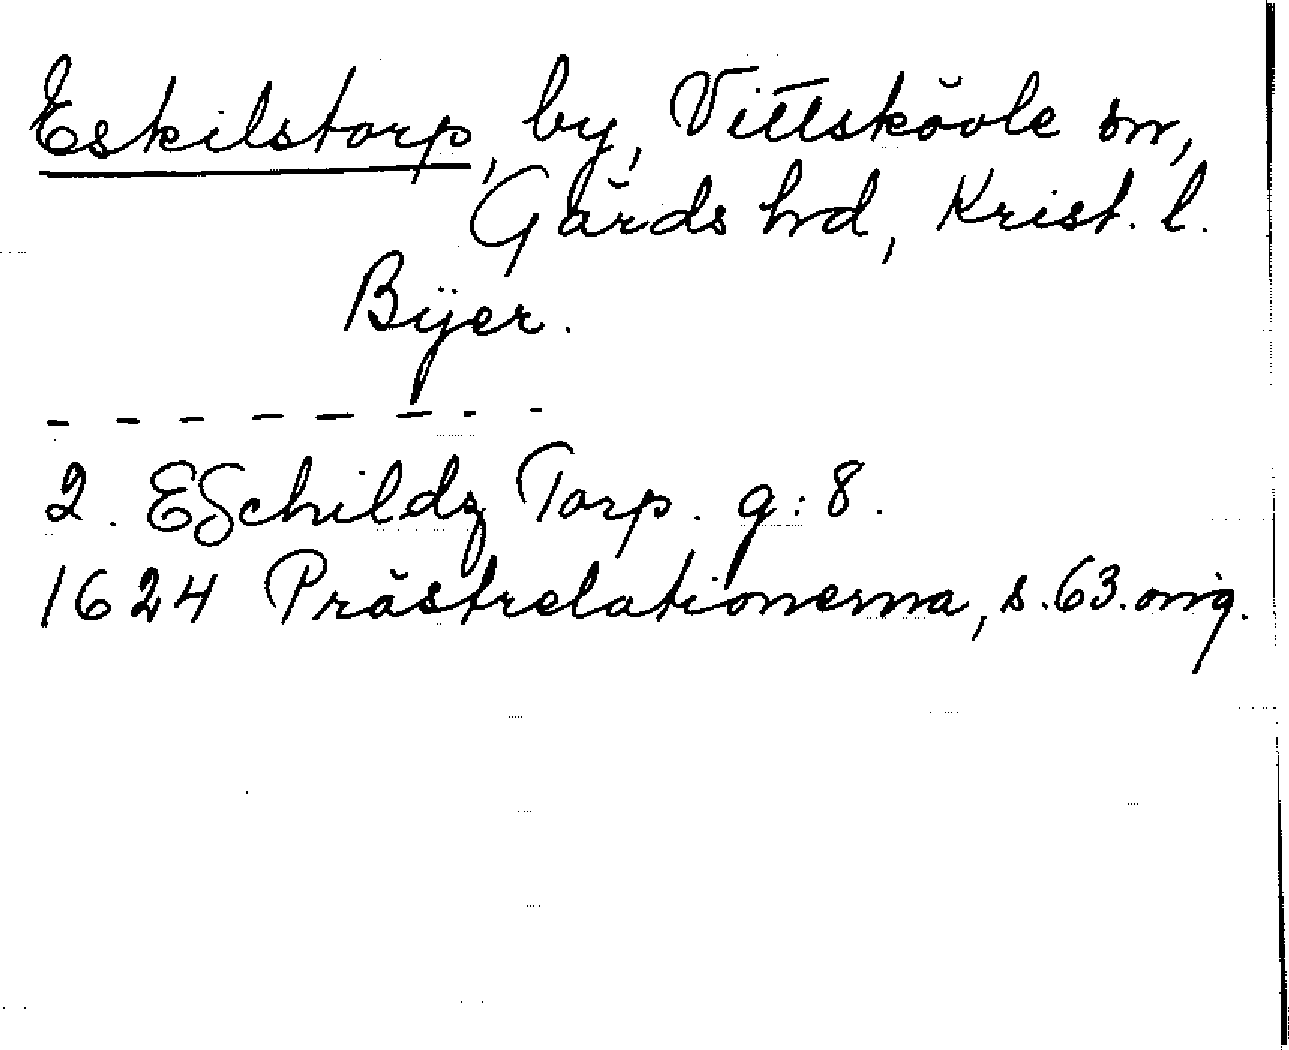 Eskilstorp, by, Vittskövle sn,
Gärds hd, Krist. l.
Bÿer.
- - - - - - - -
2. ESchildz Torp. g: 8.
1624 Prästrelationerna, s. 63. orig.